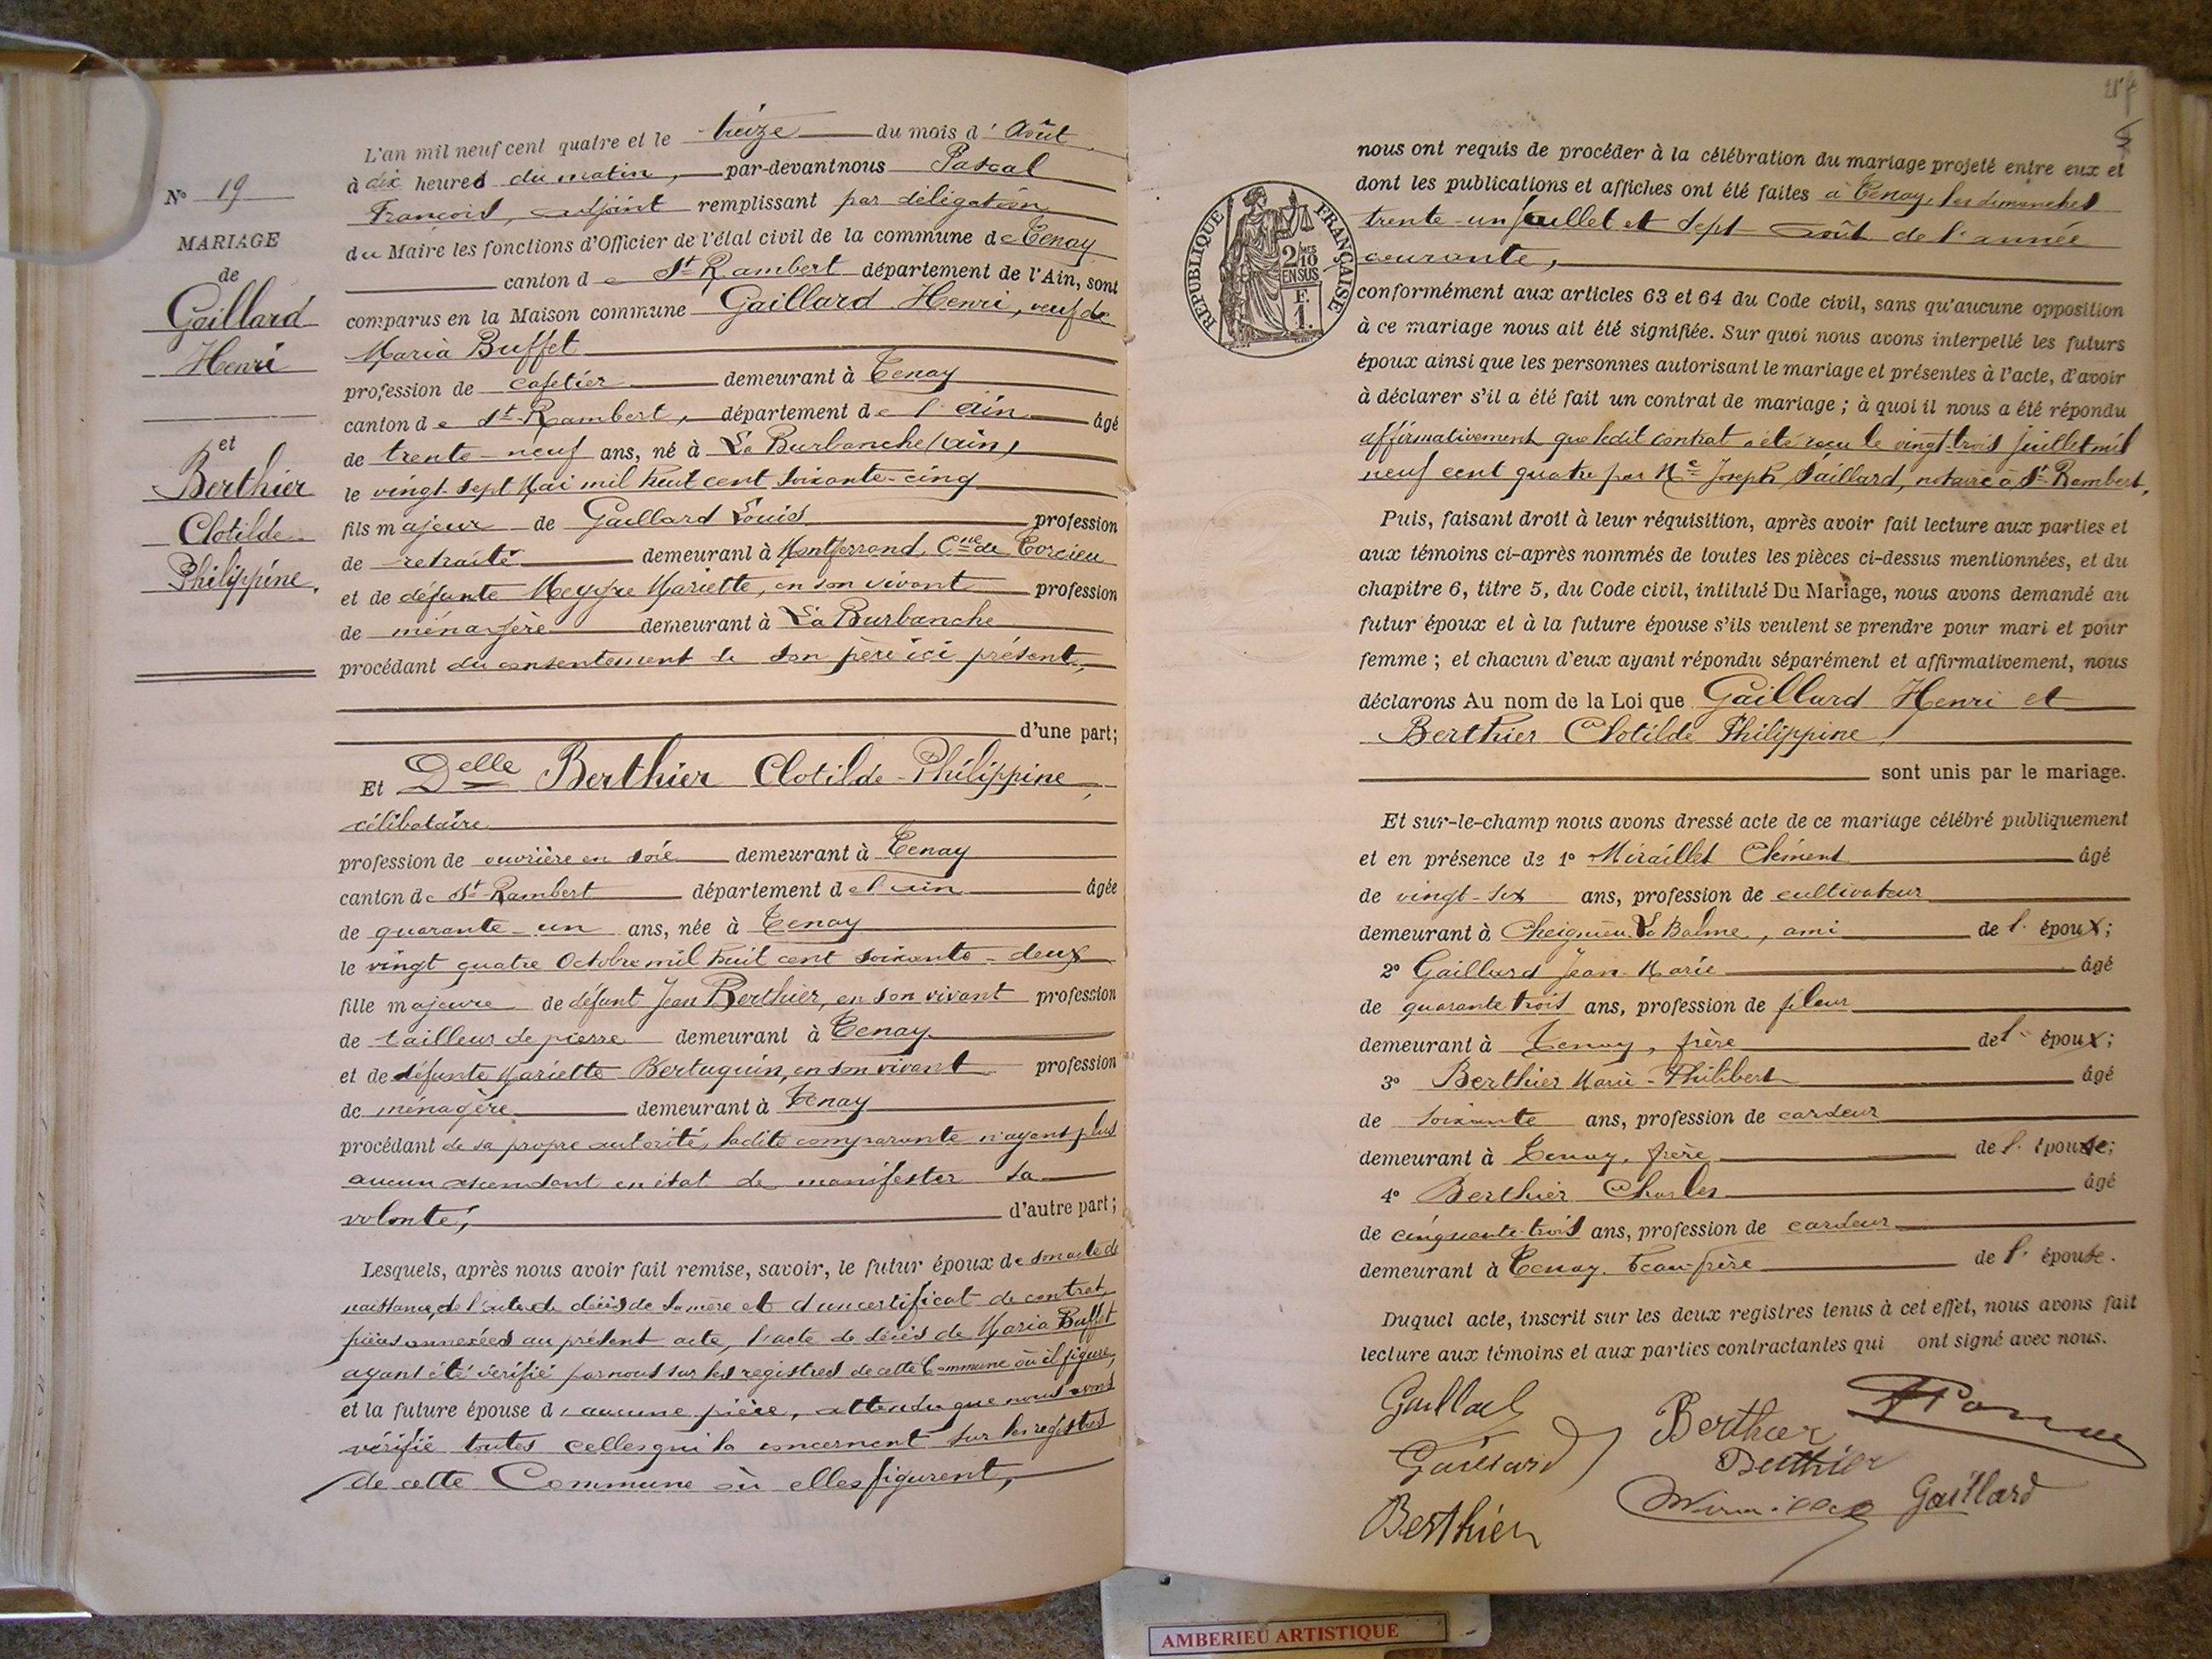 N° 19
MARIAGE
de
Gaillard
Henri
et
Berthier
Clotilde
Philippine.
L'an mil neuf cent quatre et le treize du mois d'Août
à dix heures du matin, par-devant nous Pascal
François, adjoint remplissant par délégation
du Maire les fonctions d'Officier de l'état civil de la commune de Tenay
canton de St Rambert département de l'Ain, sont
comparus en la Maison commune Gaillard Henri, veuf de
Maria Buffet
profession de cafetier demeurant à Tenay
canton de St-Rambert, département de l'ain âgé
de trente-neuf ans, né à La Burbanche (ain)
le vingt-sept Mai mil huit cent soixante-cinq
fils majeur de Gaillard Louis profession
de retraité demeurant à Montferrand, Cne de Torcieu
et de défunte Meygre Mariette, en son vivant profession
de ménagère demeurant à La Burbanche
procédant du consentement de son père ici présent,
d'une part;
Et Delle Berthier Clotilde-Philippine,
célibataire
profession de ouvrière en soie demeurant à Tenay
canton de St-Rambert département de l'ain âgée
de quarante-un ans, née à Tenay
le vingt quatre Octobre mil huit cent soixante-deux
fille majeure de défunt Jean Berthier, en son vivant profession
de tailleur de pierre demeurant à Tenay
et de défunte Mariette Bertuquin, en son vivant profession
de ménagère demeurant à Tenay
procédant de sa propre autorité, ladite comparante n'ayant plus
aucun ascendant en état de manifester sa
volonté, d'autre part;
Lesquels, après nous avoir fait remise, savoir, le futur époux de son acte de
naissance, de l'acte de décès de sa mère et d'un certificat de contrat,
pièces annexées au présent acte, l'acte de décès de Maria Buffet
ayant été vérifié par nous sur les registres de cette Commune où il figure,
et la future épouse d'aucune pièce, attendu que nous avons
vérifié toutes celles qui la concernent sur les registres
de cette Commune où elles figurent,
REPUBLIQUE FRANÇAISE
2/10 EN SUS
F.
1.
nous ont requis de procéder à la célébration du mariage projeté entre eux et
dont les publications et affiches ont été faites à Tenay, les dimanches
trente-un juillet et sept août de l'année
courante,
conformément aux articles 63 et 64 du Code civil, sans qu'aucune opposition
à ce mariage nous ait été signifiée. Sur quoi nous avons interpellé les futurs
époux ainsi que les personnes autorisant le mariage et présentes à l'acte, d'avoir
à déclarer s'il a été fait un contrat de mariage; à quoi il nous a été répondu
affirmativement que ledit contrat a été reçu le vingt-trois juillet mil
neuf cent quatre par Me Joseph Saillard, notaire à St-Rambert,
Puis, faisant droit à leur réquisition, après avoir fait lecture aux parties et
aux témoins ci-après nommés de toutes les pièces ci-dessus mentionnées, et du
chapitre 6, titre 5, du Code civil, intitulé Du Mariage, nous avons demandé au
futur époux et à la future épouse s'ils veulent se prendre pour mari et pour
femme; et chacun d'eux ayant répondu séparément et affirmativement, nous
déclarons Au nom de la Loi que Gaillard Henri et
Berthier Clotilde Philippine,
sont unis par le mariage.
Et sur-le-champ nous avons dressé acte de ce mariage célébré publiquement
et en présence de 1° Miraillet Clément âgé
de vingt-six ans, profession de cultivateur
demeurant à Cheignieu La Balme, ami de l'époux;
2° Gaillard Jean-Marie âgé
de quarante trois ans, profession de fileur
demeurant à Tenay, frère de l'époux;
3° Berthier Marie-Philibert âgé
de soixante ans, profession de cardeur
demeurant à Tenay, frère de l'épouse;
4° Berthier Charles âgé
de cinquante-trois ans, profession de cardeur
demeurant à Tenay, beau-frère de l'épouse.
Duquel acte, inscrit sur les deux registres tenus à cet effet, nous avons fait
lecture aux témoins et aux parties contractantes qui ont signé avec nous.
Gaillard Berthier
Gaillard Berthier
Berthier Gaillard
AMBERIEU ARTISTIQUE